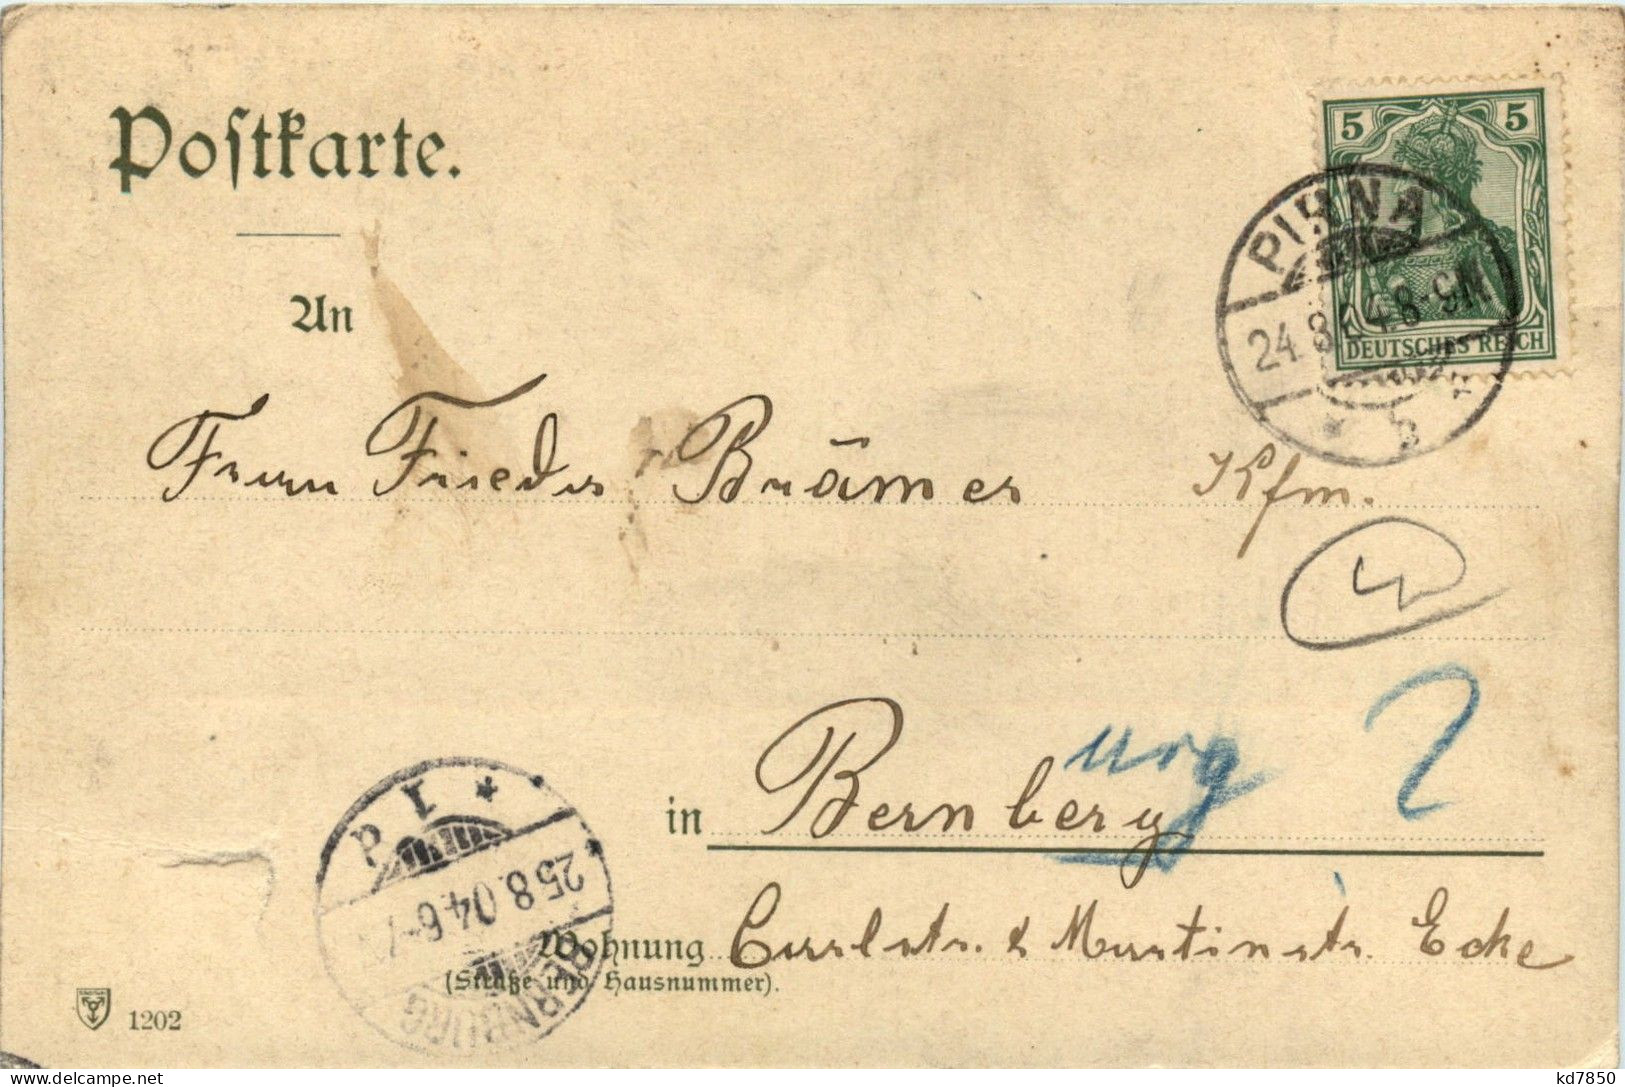 Postkarte.
5 5
DEUTSCHES REICH
PIRNA
24.8.04.8-9N
* b
An
Frau Frieda Brämer Kfm.
urg 2
in Bernberg
P I *
25.8.04.6-7
BERNBURG
Wohnung Carlstr. & Martinstr. Ecke
(Straße und Hausnummer).
1202
kd7850